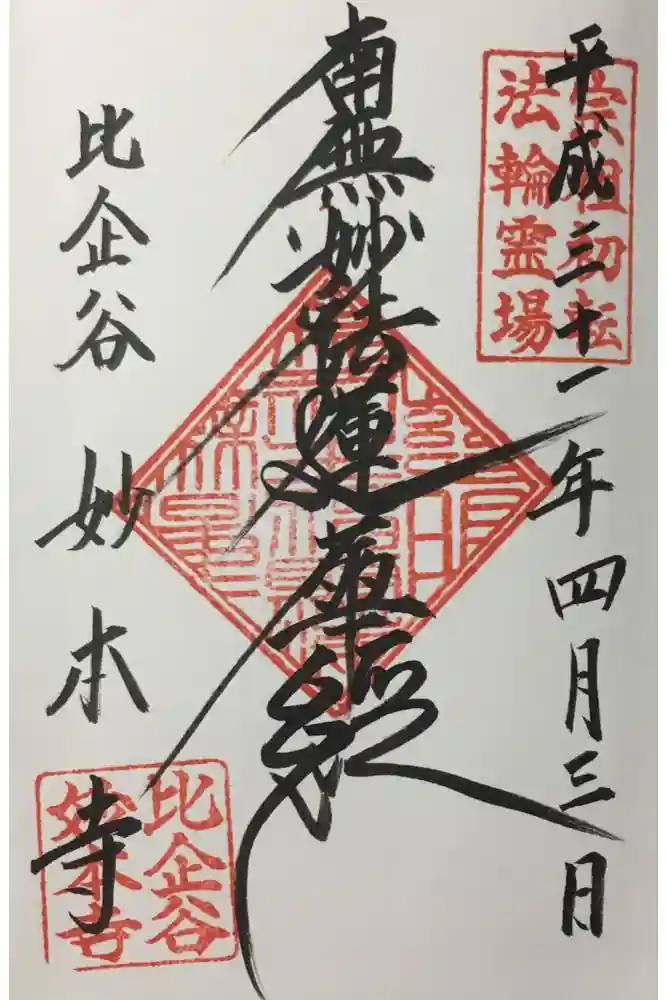 平成三十一年四月三日
宗祖初転
法輪霊場
南無妙法蓮華経
比企谷
妙本寺
比企谷
妙本寺